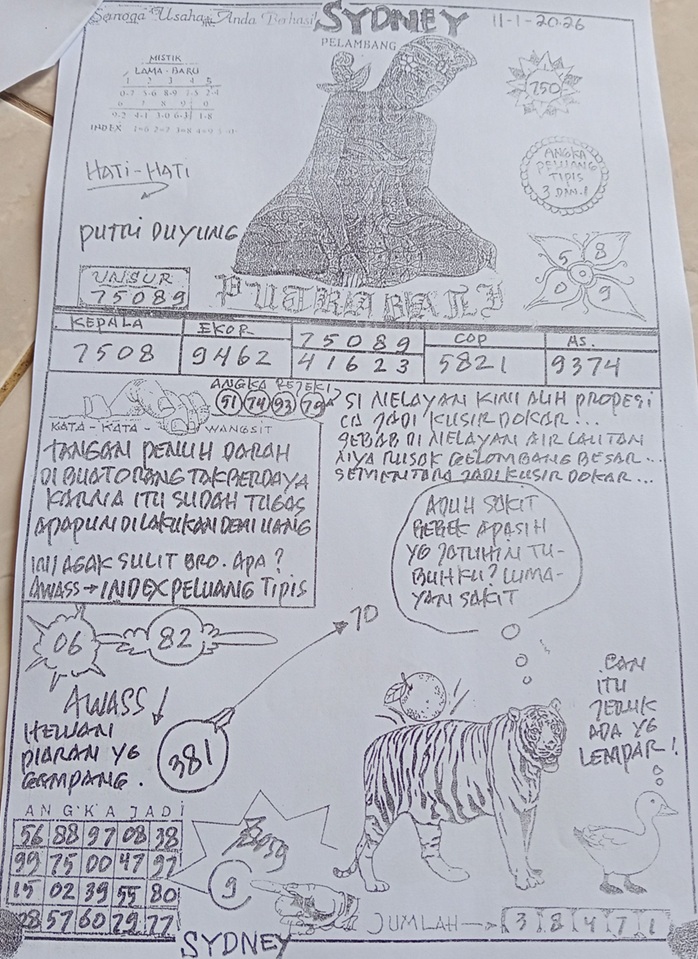 Semoga Usaha Anda Berhasil
SYDNEY
11-1-2026
PELAMBANG
MISTIK
LAMA-BARU
1 2 3 4 5
0-7 5-6 8-9 1-3 2-4
6 7 8 9 0
9-2 4-1 3-0 6-3 1-8
INDEX
750
HATI-HATI
ANGKA
PELUANG
TIPIS
PUTRI DUYUNG
5 8
0 9
UNSUR
75089
PUTRA BALI
KEPALA
7508
EKOR
9462
75089
41623
COP
5821
AS.
9374
ANGKA REJEKI
51 74 93 79
KATA-KATA WANGSIT
TANGAN PENUH DARAH
DIBUAT ORANG TAK BERDAYA
KARNA ITU SUDAH TUGAS
APAPUN DILAKUKAN DEMI UANG
INI AGAK SULIT BRO. APA?
AWASS → INDEX PELUANG TIPIS
SI NELAYAN KINI ALIH PROPESI
JADI KUSIR DOKAR...
SEBAB DI NELAYAN AIR LAUTAN
NYA RUSAK GELOMBANG BESAR...
SEMENTARA JADI KUSIR DOKAR...
ADUH SAKIT
BEBEK APASIH
YG JATUHIN TU-
BUHKU? LUMA-
YAN SAKIT
06
82
70
AWASS
HEWAN
DIARAN YG
GAMPANG.
381
CAN
ITU
JERUK
ADA YG
LEMPAR!
ANGKA JADI
56 88 97 08 38
99 75 00 47 97
15 02 39 55 80
28 57 60 79 77
9
JUMLAH → 3 8 4 7 1
SYDNEY